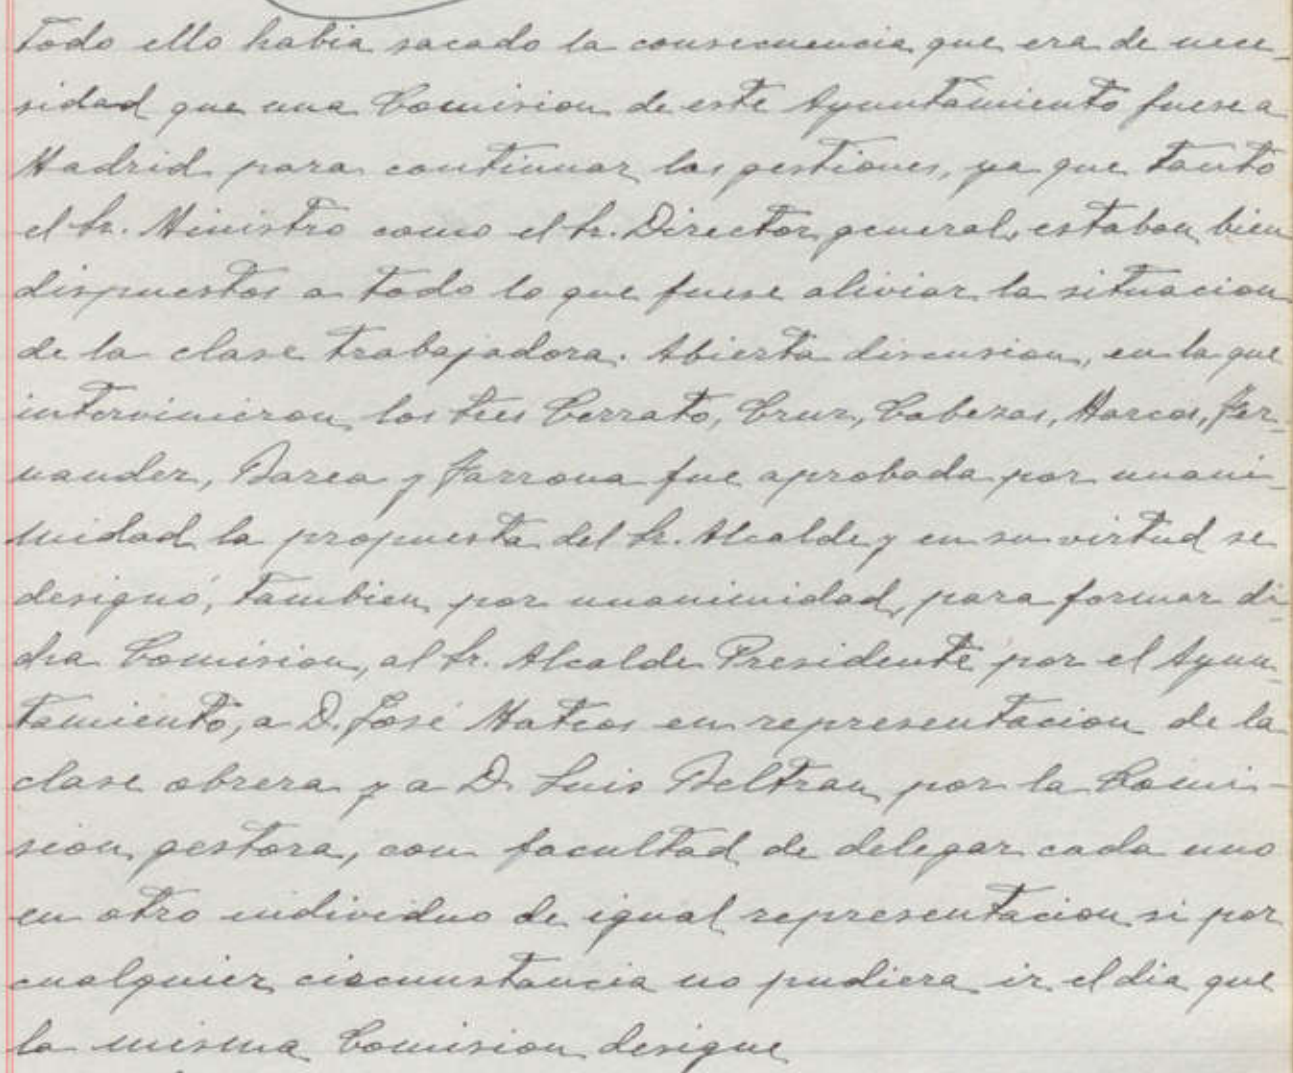 todo ello habia sacado la consecuencia que era de nece-
sidad que una Comision de este Ayuntamiento fuese a
Madrid para continuar las gestiones, ya que tanto
el Sr. Ministro como el Sr. Director general, estaban bien
dispuestos a todo lo que fuese aliviar la situacion
de la clase trabajadora. Abierta discusion, en la que
intervinieron los Sres Cerrato, Cruz, Cabezas, Marcos, Fer-
nandez, Barea y Farrona fue aprobada por unani-
midad la propuesta del Sr. Alcalde y en su virtud se
designó, tambien por unanimidad, para formar di-
cha Comision, al Sr. Alcalde Presidente por el Ayun-
tamiento, a D. José Mateos en representacion de la
clase obrera y a D. Luis Beltran por la Comi-
sion gestora, con facultad de delegar cada uno
en otro individuo de igual representacion si por
cualquier circunstancia no pudiera ir el dia que
la misma Comision designe